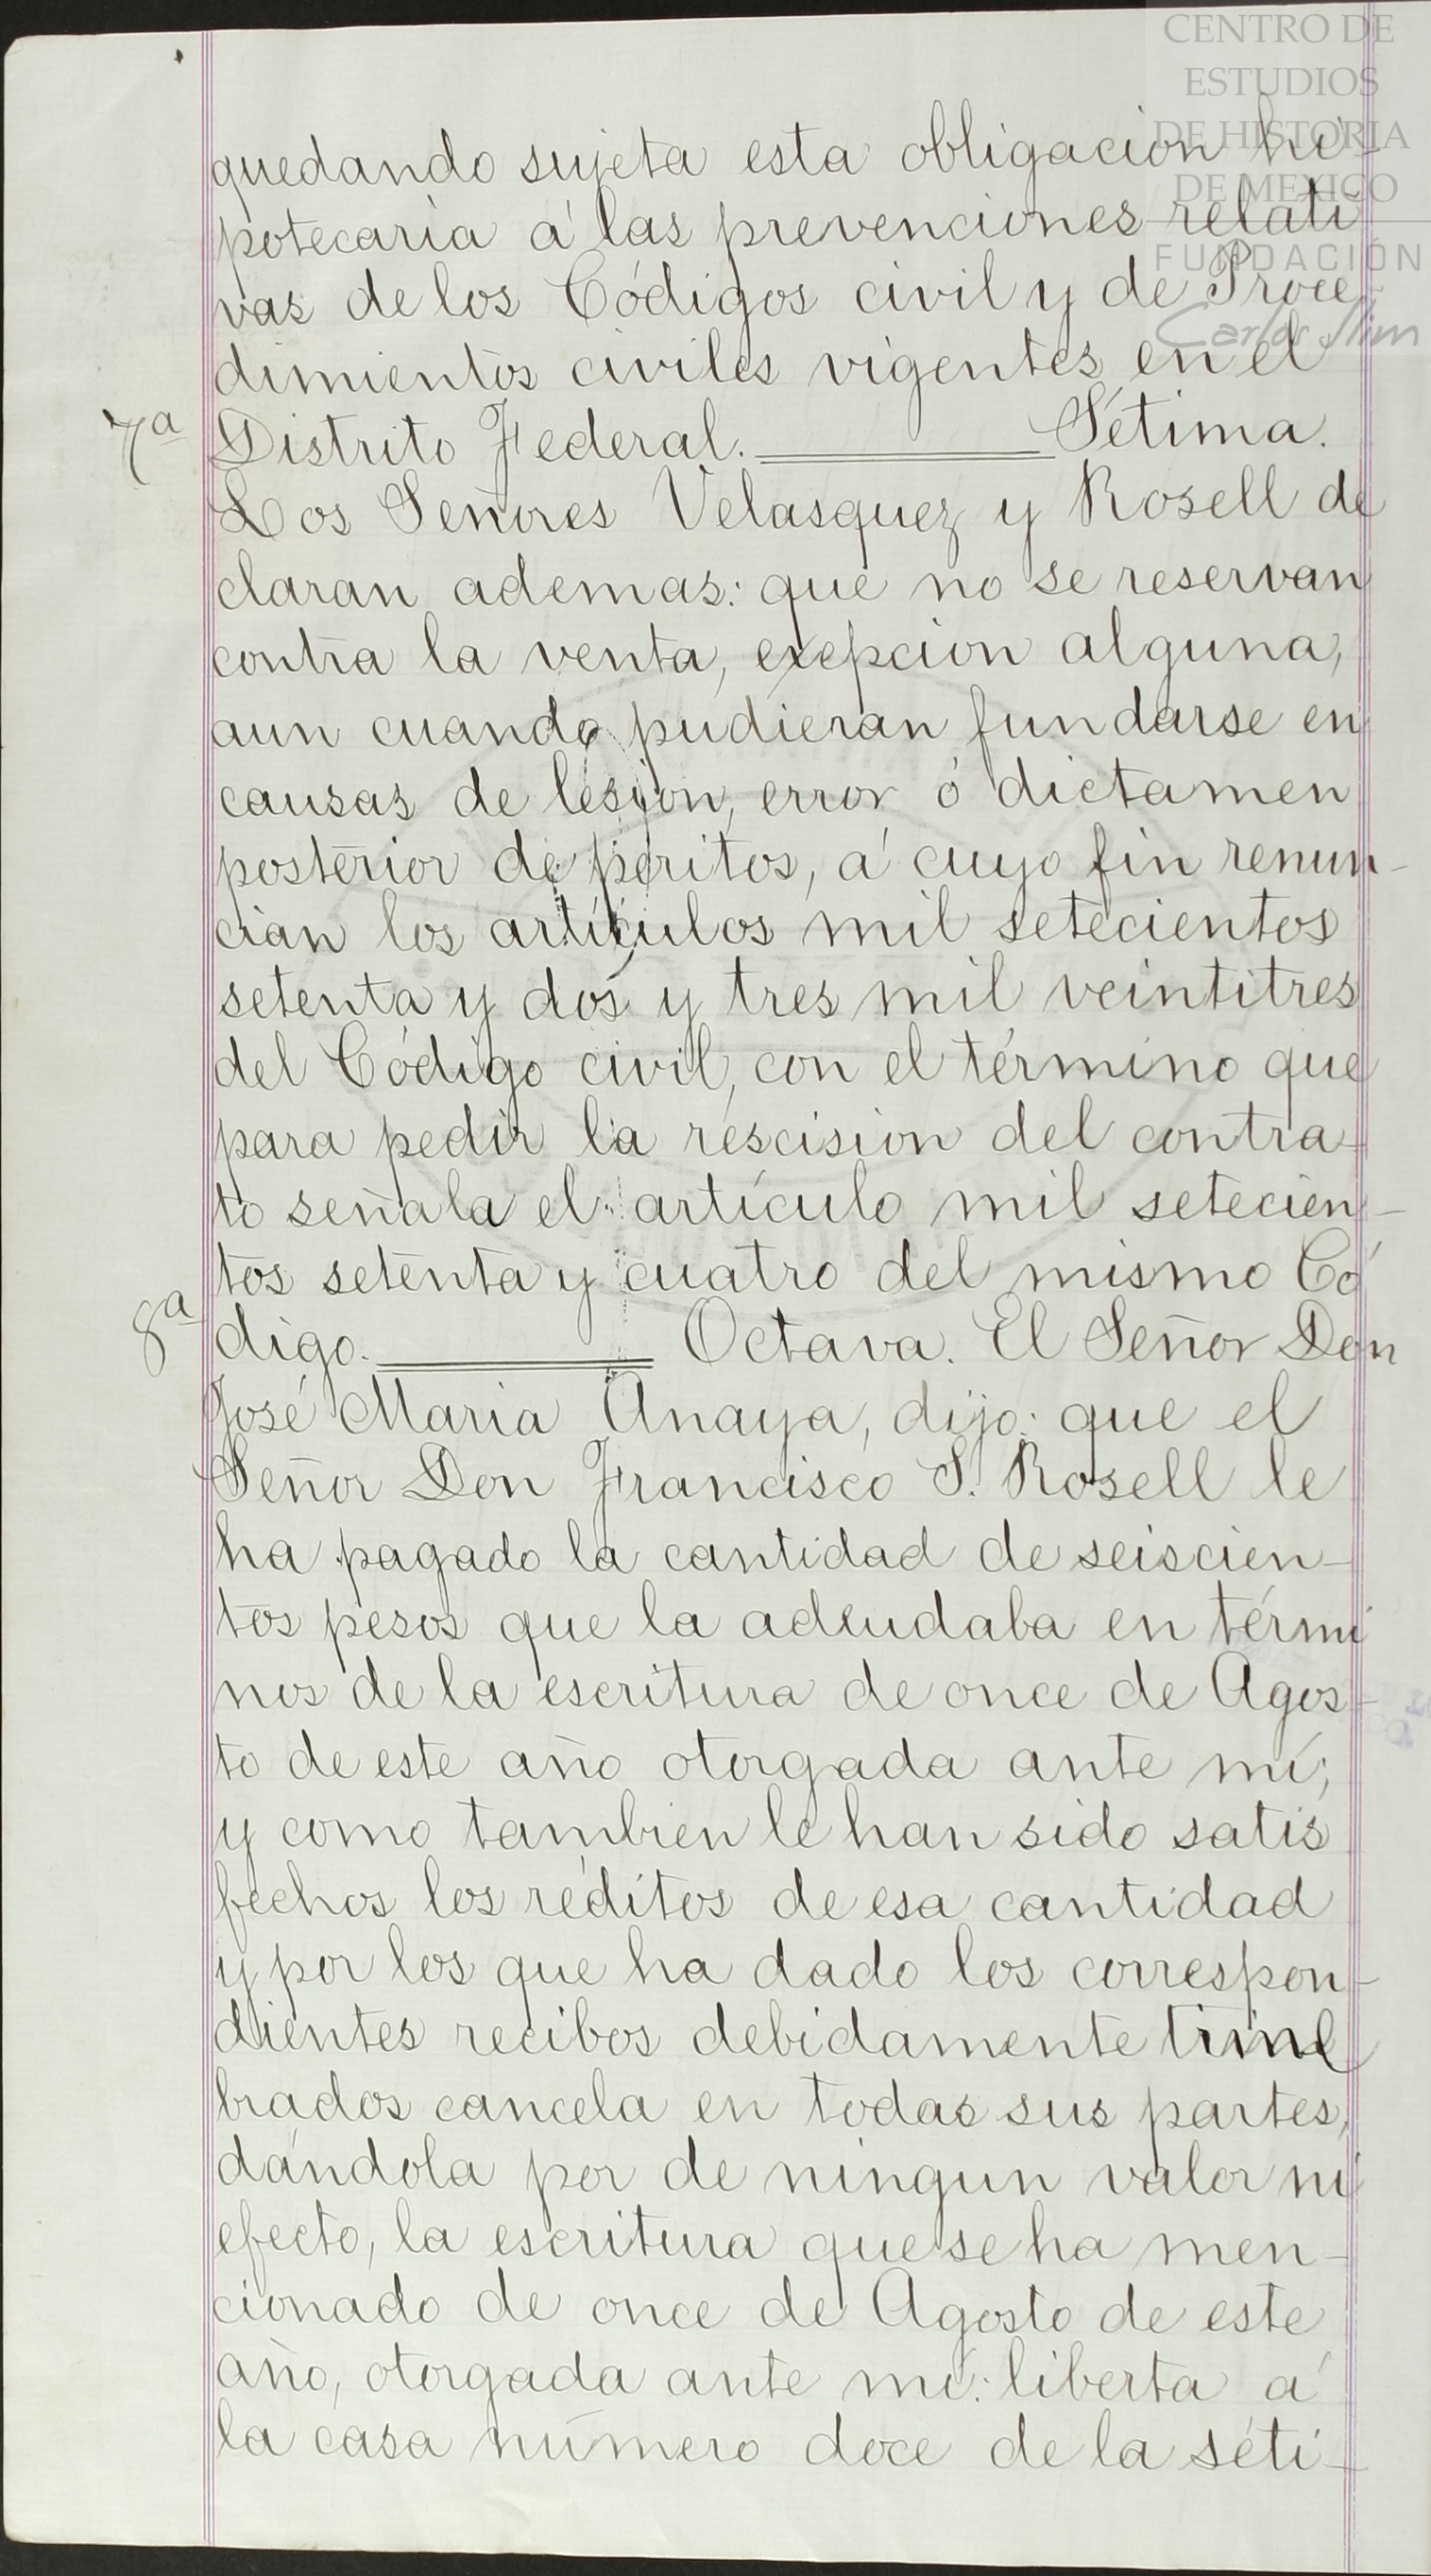 CENTRO DE
ESTUDIOS
DE HISTORIA
DE MEXICO
FUNDACIÓN
Carlos Slim
quedando sujeta esta obligacion hi-
potecaria á las prevenciones relati
vas de los Códigos civil y de Proce-
dimientos civiles vigentes en el
7ª Distrito Federal. Sétima.
Los Señores Velasquez y Rosell de
claran ademas: que no se reservan
contra la venta, exepcion alguna,
aun cuando pudieran fundarse en
causas de lesion, error ó dictamen
posterior de peritos, á cuyo fin renun-
cian los artículos mil setecientos
setenta y dos y tres mil veintitres
del Código civil, con el término que
para pedir la rescision del contra-
to señala el artículo mil setecien-
tos setenta y cuatro del mismo Có
8ª digo. Octava. El Señor Don
José Maria Anaya, dijo: que el
Señor Don Francisco S. Rosell le
ha pagado la cantidad de seiscien-
tos pesos que la adeudaba en térmi
nos de la escritura de once de Agos-
to de este año otorgada ante mí;
y como tambien le han sido satis
fechos los réditos de esa cantidad
y por los que ha dado los correspon-
dientes recibos debidamente tim
brados cancela en todas sus partes,
dándola por de ningun valor ni
efecto, la escritura que se ha men-
cionado de once de Agosto de este
año, otorgada ante mí: liberta á
la casa número doce de la séti-